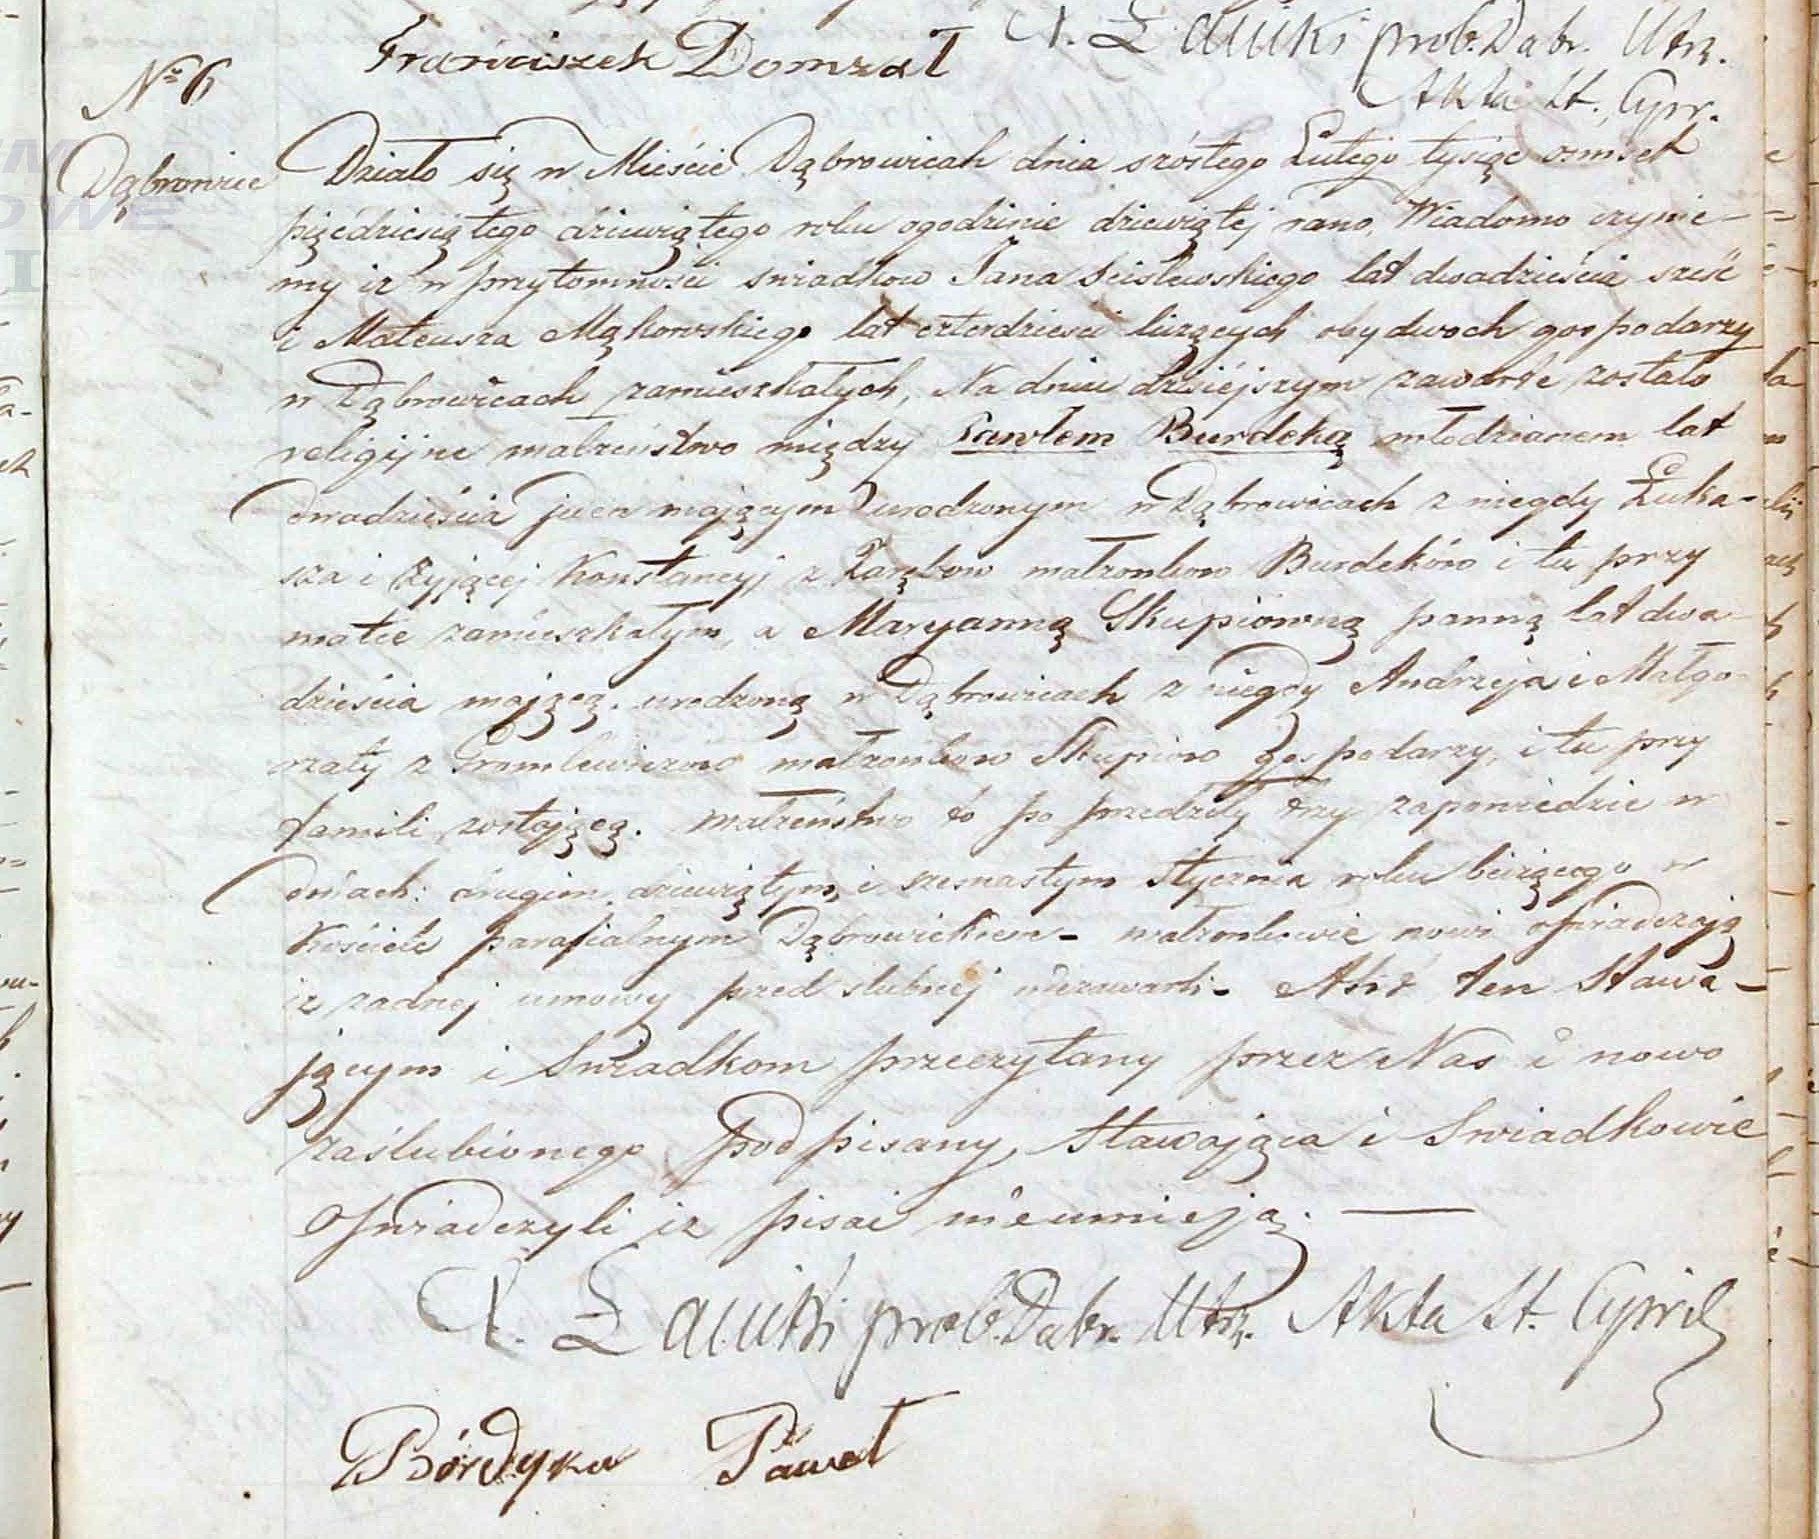 Franciszek Domzał
X. Ławicki prob. Dąbr. Utrz.
Akta St. Cywr.
№ 6
Dąbrowice
Działo się w Mieście Dąbrowicah dnia szóstego Lutego tysiąc ośmset
pięćdziesiątego dziewiątego roku ogodzinie dziewiątej rano, Wiadomo czynie-
my iz w przytomności swiadkow Jana Scislewskiego lat dwadzieścia sześć
i Mateusza Mąkowskiego lat czterdzieści liczących obydwoch gospodarzy
w Dąbrowicach zamieszkałych, Na dniu dzisiéjszym zawarte zostało
religijne małżeństwo między Pawłem Burdeką młodzianem lat
dwadzieścia jeden mającym urodzonym w Dąbrowicach z niegdy Łuka-
sza i żyjącej Konstancyj z Zarębow małzonkow Burdeków i tu przy
matce zamieszkałym, a Maryanną Skupiowną panną lat dwa
dzieścia mającą. urodzoną w Dąbrowicach z niegdy Andrzeja i Małgo-
rzaty z małzonkow Skupiow gospodarzy, i tu przy
famili zostającą. małżeństwo to po przedziły trzy zapowiedzie w
dniach: drugim, dziewiątym, i szesnastym Stycznia roku bieżącego w
Kościele parafialnym Dąbrowickiem - małzonkowie nowi oswiadczają
iz zadnej umowy przed slubnej niezawarli - Akt ten Stawa-
jącym i Swiadkom przeczytany przez Nas i nowo
zaślubionego podpisany, Stawająca i Swiadkowie
Oswiadczyli iz pisac nieumieją. —
X. Ławicki prob. Dąbr. Utrz. Akta St. Cywil
Bórdyka Páweł